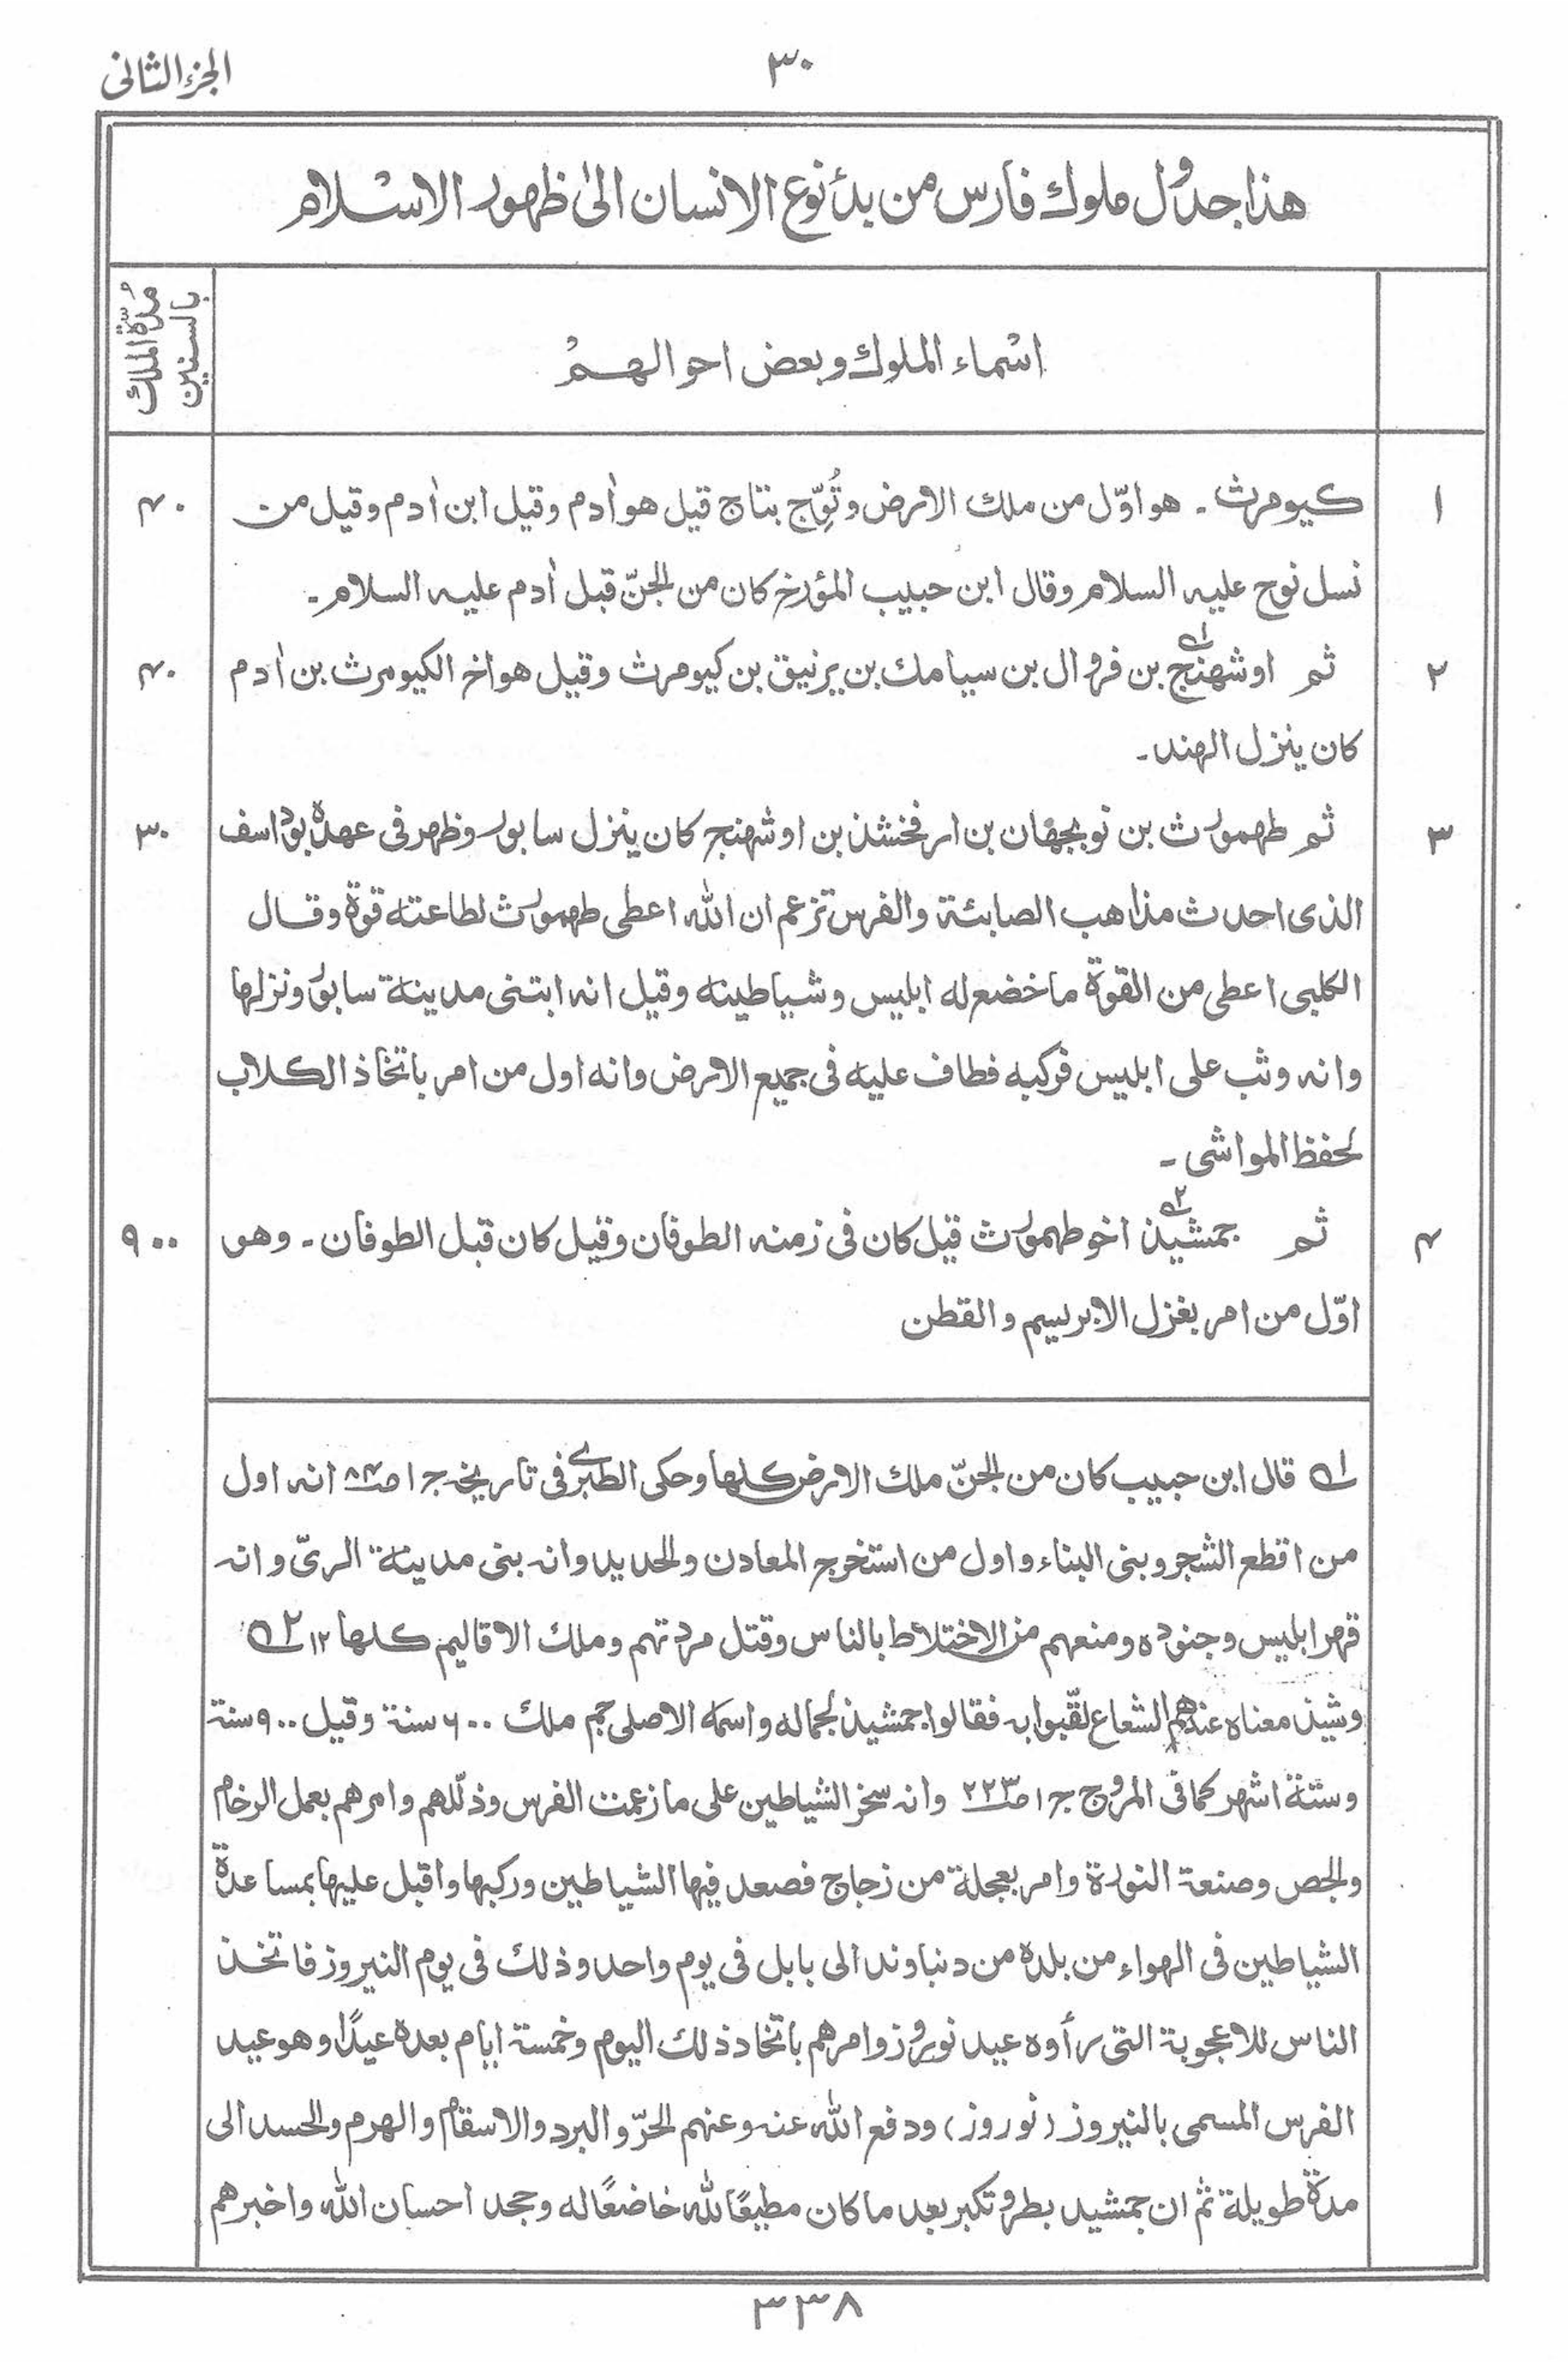 الجزء الثانى
۳۰
هذا جدول ملوك فارس من بدأ نوع الانسان الىٰ ظهور الاسلام
اسماء الملوك وبعض احوالهم
مُدّة الملك
بالسنين
۱ كيومرث ـ هو اوّل من ملك الارض وتُوِّج بتاج قيل هو اٰدم وقيل ابن اٰدم وقيل من ۴۰
نسل نوح عليه السلام وقال ابن حبيب المؤرخ كان من الجنّ قبل اٰدم عليه السلام ـ
۲ ثم اوشهنج ۱ بن فروال بن سيامك بن يرنيق بن كيومرث وقيل هو اخ الكيومرث بن اٰدم ۴۰
كان ينزل الهند ـ
۳ ثم طهمورث بن نوبجهان بن ارفخشذ بن اوشهنج كان ينزل سابور وظهر فى عهده بوداسف ۳۰
الذى احدث مذاهب الصابئة والفرس تزعم ان الله اعطى طهمورث لطاعته قوة وقال
الكلبى اعطى من القوة ما خضع له ابليس وشياطينه وقيل انه ابتنى مدينة سابور ونزلها
وانه وثب على ابليس فركبه فطاف عليه فى جميع الارض وانه اول من امر باتخاذ الكلاب
لحفظ المواشى ـ
۴ ثم جمشيذ ۲ اخو طهمورث قيل كان فى زمنه الطوفان وقيل كان قبل الطوفان ـ وهو ۹۰۰
اوّل من امر بغزل الابريسم والقطن
۱ قال ابن حبيب كان من الجنّ ملك الارض كلها وحكى الطبرى فى تاريخه ج ۱ ص ۸۴ انه اول
من اقطع الشجر وبنى البناء واول من استخرج المعادن والحديد وانه بنى مدينة الرىّ وانه
قهر ابليس وجنوده ومنعهم من الاختلاط بالناس وقتل مردتهم وملك الاقاليم كلها ۱۲ ۲
وشيذ معناه عندهم الشعاع لقّبوا به فقالوا جمشيذ لجماله واسمه الاصلى جم ملك ۶۰۰ سنة وقيل ۹۰۰ سنة
وستة اشهر كما فى المروج ج ۱ ص ۲۲۳ وانه سخر الشياطين على ما زعمت الفرس وذلّلهم وامرهم بعمل الرخام
والجص وصنعة النورة وامر بعجلة من زجاج فصعد فيها الشياطين وركبها واقبل عليها بمساعدة
الشياطين فى الهواء من بلده من دنباوند الى بابل فى يوم واحد وذلك فى يوم النيروز فاتخذ
الناس للاعجوبة التى رأوه عيد نوروز وامرهم باتخاذ ذلك اليوم وخمسة ايام بعده عيدًا وهو عيد
الفرس المسمى بالنيروز (نوروز) ودفع الله عنه وعنهم الحرّ والبرد والاسقام والهرم والحسد الى
مدة طويلة ثم ان جمشيد بطر وتكبر بعد ما كان مطيعًا لله خاضعًا له وجحد احسان الله واخبرهم
۳۳۸